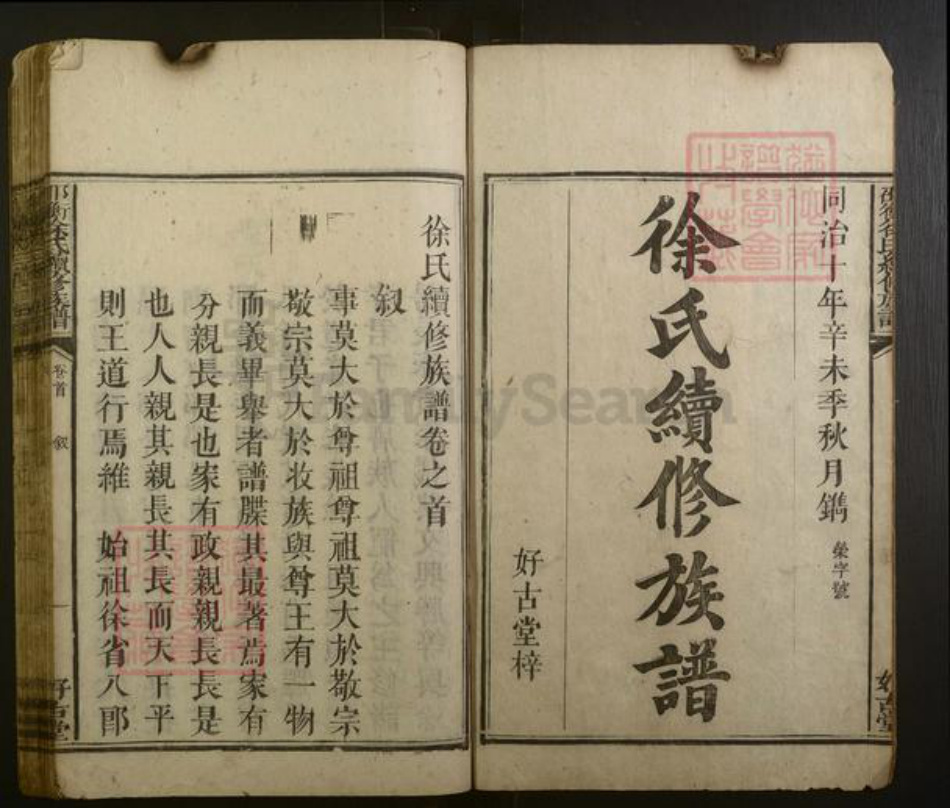 同治十年辛未季秋月鐫 榮字號
徐氏續修族譜
好古堂梓
徐氏續修族譜卷之首
叙
事莫大於尊祖尊祖莫大於敬宗
敬宗莫大於收族與尊王有一物
而義畢舉者譜牒其最著焉家有
分親長是也家有政親親長長是
也人人親其親長其長而天下平
則王道行焉維 始祖徐省八郎
徐氏續修族譜
卷首 叙
好古堂
FamilySearch